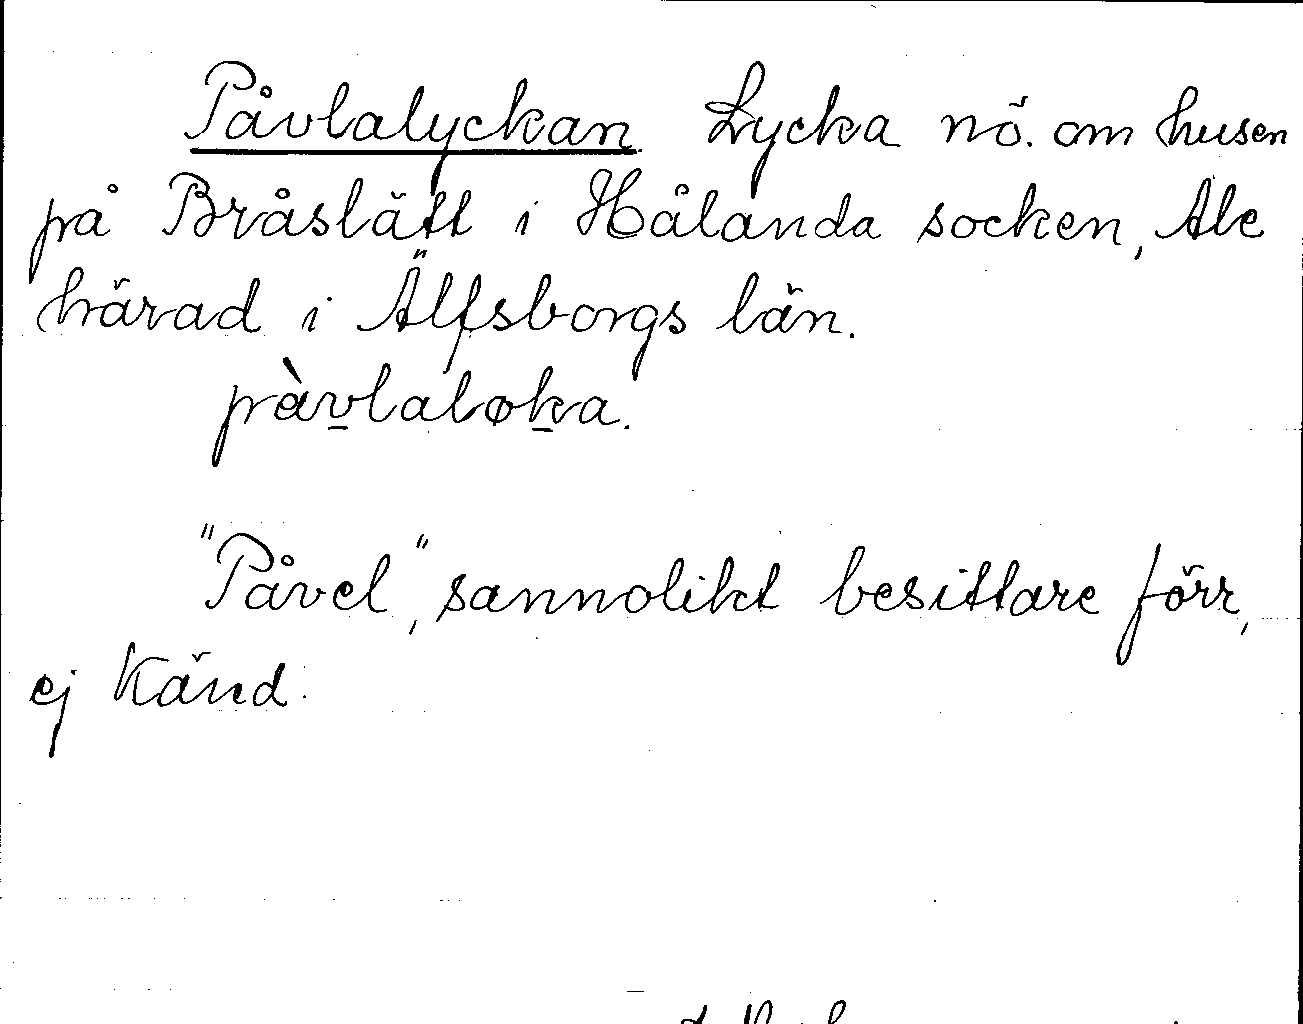 Påvlalyckan. Lycka nö. om husen
på Bråslätt i Hålanda socken, Ale
härad i Älfsborgs län.
pàv̲laløk̲a.
"Påvel", sannolikt besittare förr,
ej känd.